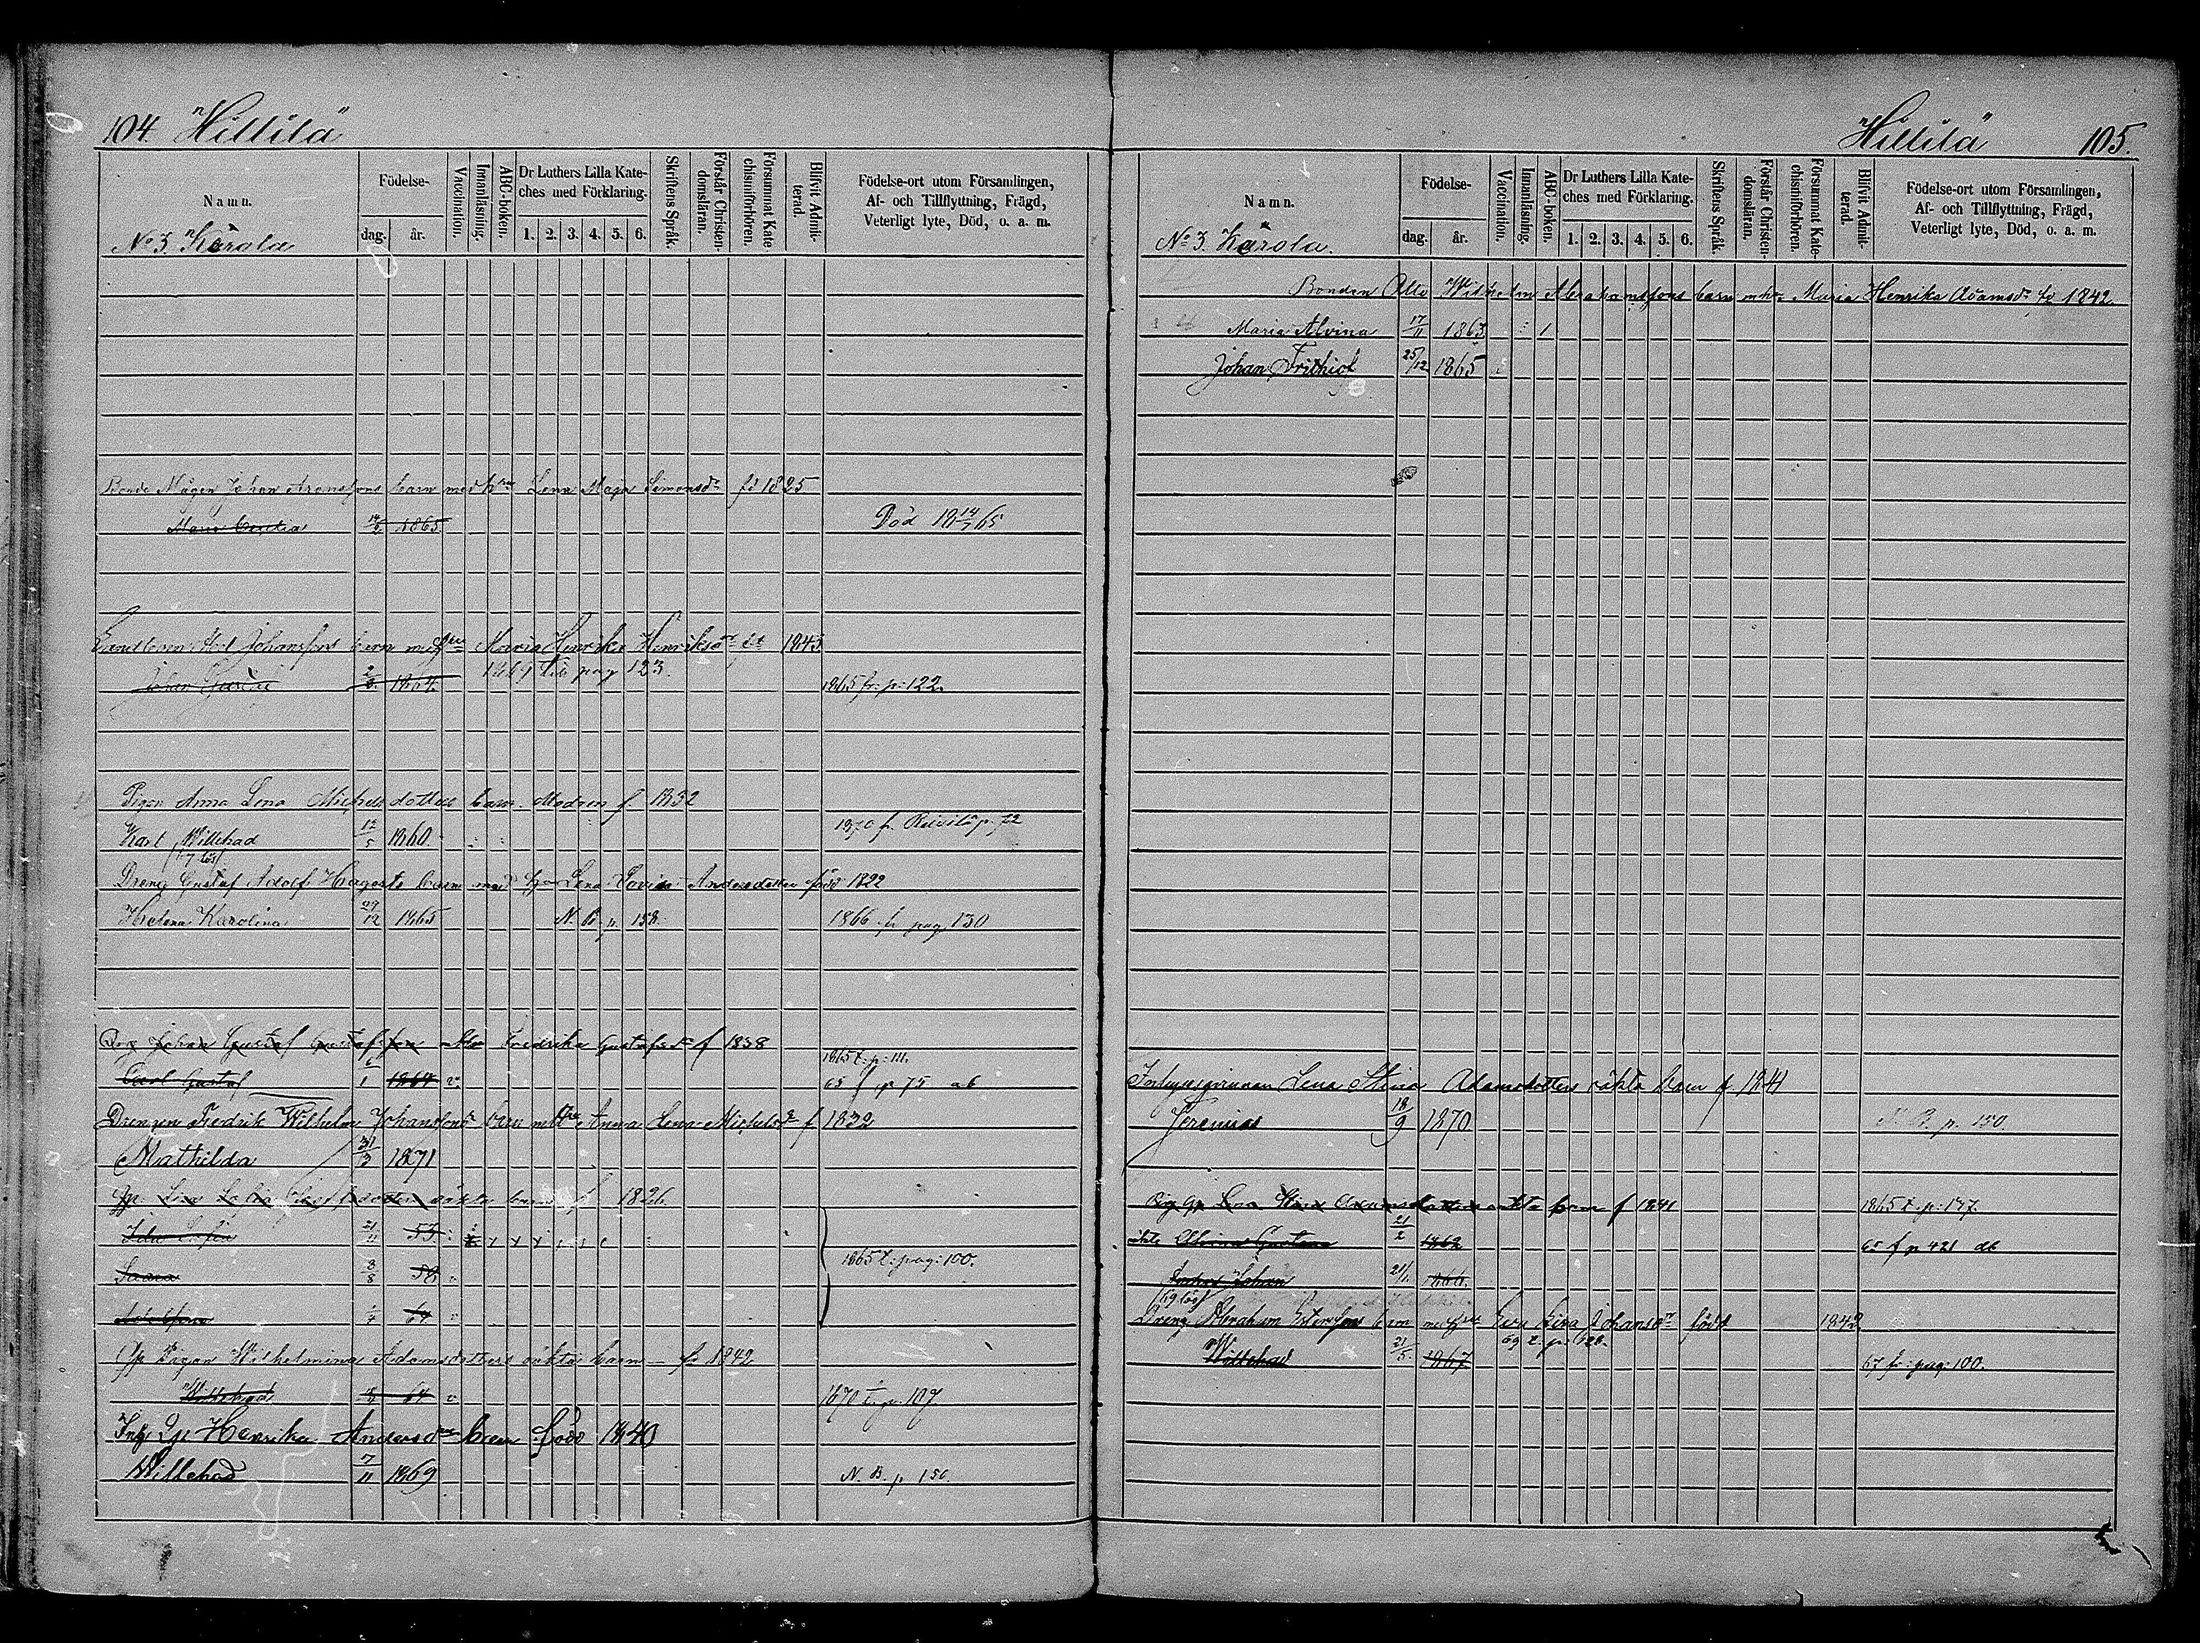 104. "Hillilä"
Namn.
Födelse-
dag. år.
Vaccination.
Innanläsning.
ABC-boken.
Dr Luthers Lilla Kate-
ches med Förklaring.
1. 2. 3. 4. 5. 6.
Skriftens Språk.
Förstår Christen-
domsläran.
Försummat Kate-
chismiförhören.
Blifvit Admit-
terad.
Födelse-ort utom Församlingen,
Af- och Tillflyttning, Frägd,
Veterligt lyte, Död, o. a. m.
No 3. Kärola
Bonde Mågen Johan Aronssons barn med hru Lena Maja Simonsdr fö 1825
1865 Död 18 14/7 65
Johanssons barn med Maria Henrika Henriksdr 1843
1869 till pag 123.
Johan 1864. 1865 fr. p. 122.
Pigan Anna Lena Michelsdotters barn Modren f. 1832
Karl Willehad 12/5 1860 1870 fr. p. 72
Dreng Gustaf Adolf Hagerts barn med hu Lena Lovisa Andersdotter född 1822
Helena Karolina 29/12 1865 N. B. p. 158. 1866 fr pag 130
Drg Johan Gustaf Gustafsson Fredrika Gustafsdr f 1838
1865 t. p. 111.
Carl Gustaf 1864 65 f p 75 ab
Drengen Fredrik Wilhelm Johanssons barn m hu Anna Lena Michelsdr f 1832
Mathilda 31/3 1871
Lisa oäkta barn f 1826
Ida Sofia 21/11 53
Saara 8/8 58 1865 t. pag. 100.
64
Pigan Wilhelmina Adamsdotters oäkta barn fö 1842
Willehad 64 1870 t. p. 107
Henrika Andersdrs barn född 1840
Willehad 7/11 1869 N. B. p 150.
"Hillilä" 105.
Namn.
Födelse-
dag. år.
Vaccination.
Innanläsning.
ABC-boken.
Dr Luthers Lilla Kate-
ches med Förklaring.
1. 2. 3. 4. 5. 6.
Skriftens Språk.
Förstår Christen-
domsläran.
Försummat Kate-
chismiförhören.
Blifvit Admit-
terad.
Födelse-ort utom Församlingen,
Af- och Tillflyttning, Frägd,
Veterligt lyte, Död, o. a. m.
No 3. Kärola.
Bonden Wilhelm Abrahamssons barn m hu Maria Henrika Adamsdr fö 1842.
Maria Alvina 17/11 1863 1
Johan Frithiof 25/12 1865
Lena Stina Adamsdotters oäkta barn f. 1841
Jeremias 18/9 1870 N. B. p. 150.
Lena Stina Adamsdotters oäkta barn f 1841 1865 t. p. 177.
21/2 1862 65 f p 421 ab
Johan 21/1 1866.
Dreng Abraham barn med hu Eva Lisa Johansdr född 1842
Willehad 21/5 1867 67 fr. pag. 100.